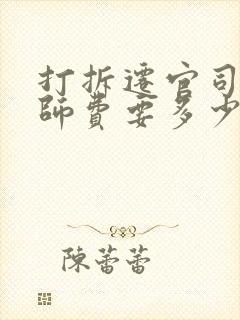 打拆遷官司
師費要多少
陳蕾蕾